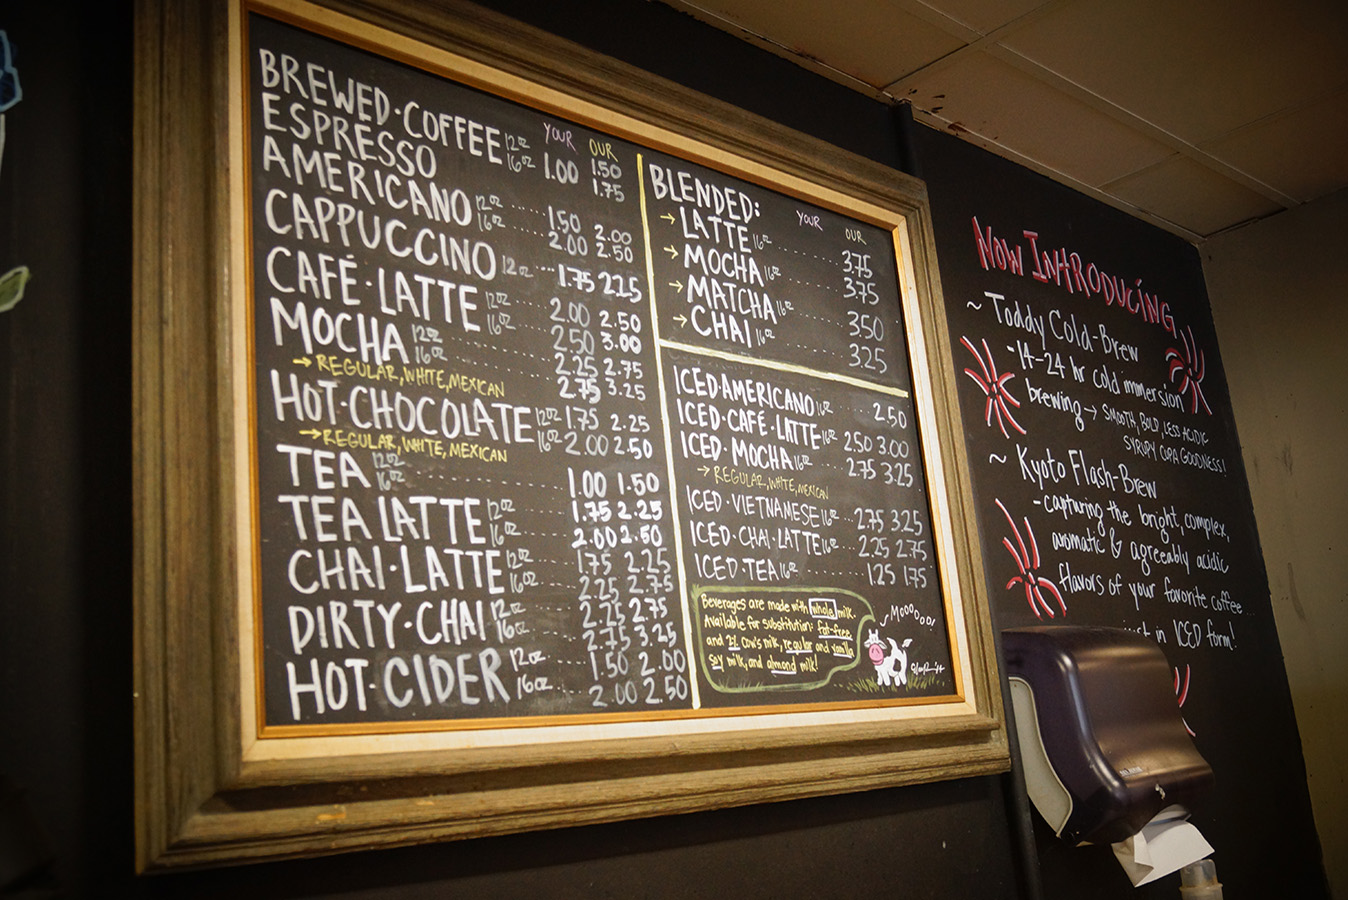 YOUR OUR
BREWED·COFFEE 12oz 1.00 1.50
16oz 1.75
ESPRESSO
AMERICANO 12oz 1.50 2.00
16oz 2.00 2.50
CAPPUCCINO 12oz 1.75 2.25
CAFÉ·LATTE 12oz 2.00 2.50
16oz 2.50 3.00
MOCHA 12oz 2.25 2.75
16oz 2.75 3.25
→ REGULAR, WHITE, MEXICAN
HOT·CHOCOLATE 12oz 1.75 2.25
16oz 2.00 2.50
→ REGULAR, WHITE, MEXICAN
TEA 12oz
16oz 1.00 1.50
TEA LATTE 12oz 1.75 2.25
16oz 2.00 2.50
CHAI·LATTE 12oz 1.75 2.25
16oz 2.25 2.75
DIRTY·CHAI 12oz 2.25 2.75
16oz 2.75 3.25
HOT·CIDER 12oz 1.50 2.00
16oz 2.00 2.50
BLENDED: YOUR OUR
→ LATTE 16oz 3.75
→ MOCHA 16oz 3.75
→ MATCHA 16oz 3.50
→ CHAI 16oz 3.25
ICED·AMERICANO 16oz 2.50
ICED·CAFÉ·LATTE 16oz 2.50 3.00
ICED·MOCHA 16oz 2.75 3.25
→ REGULAR, WHITE, MEXICAN
ICED·VIETNAMESE 16oz 2.75 3.25
ICED·CHAI·LATTE 16oz 2.25 2.75
ICED·TEA 16oz 1.25 1.75
Beverages are made with whole milk.
Available for substitution: fat-free
and 2% cow's milk, regular and vanilla
soy milk, and almond milk!
MOOOOOO!
NOW INTRODUCING
~ Toddy Cold-Brew
-14-24 hr cold immersion
brewing → SMOOTH, BOLD, LESS ACIDIC
SYRUPY CUPA GOODNESS!
~ Kyoto Flash-Brew
-capturing the bright, complex,
aromatic & agreeably acidic
flavors of your favorite coffee...
just in ICED form!